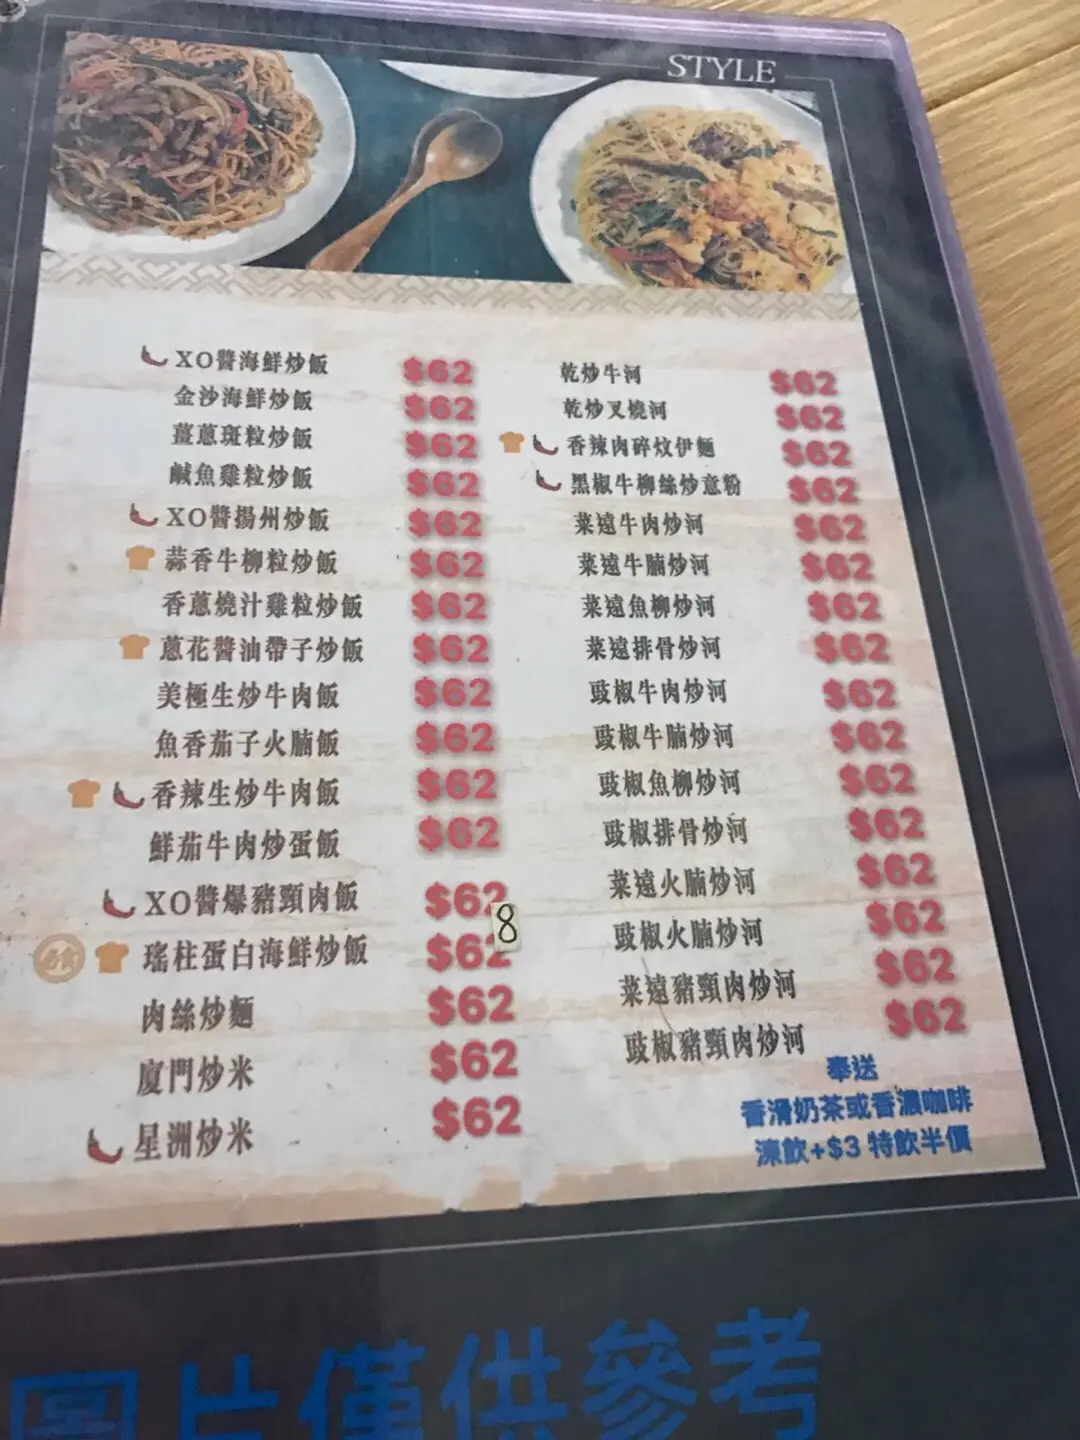 STYLE
XO醬海鮮炒飯 $62
金沙海鮮炒飯 $62
薑蔥斑粒炒飯 $62
鹹魚雞粒炒飯 $62
XO醬揚州炒飯 $62
蒜香牛柳粒炒飯 $62
香蔥燒汁雞粒炒飯 $62
蔥花醬油帶子炒飯 $62
美極生炒牛肉飯 $62
魚香茄子火腩飯 $62
香辣生炒牛肉飯 $62
鮮茄牛肉炒蛋飯 $62
XO醬爆豬頸肉飯 $62
瑤柱蛋白海鮮炒飯 $68
肉絲炒麵 $62
廈門炒米 $62
星洲炒米 $62
乾炒牛河 $62
乾炒叉燒河 $62
香辣肉碎炆伊麵 $62
黑椒牛柳絲炒意粉 $62
菜遠牛肉炒河 $62
菜遠牛腩炒河 $62
菜遠魚柳炒河 $62
菜遠排骨炒河 $62
豉椒牛肉炒河 $62
豉椒牛腩炒河 $62
豉椒魚柳炒河 $62
豉椒排骨炒河 $62
菜遠火腩炒河 $62
豉椒火腩炒河 $62
菜遠豬頸肉炒河 $62
豉椒豬頸肉炒河 $62
奉送
香滑奶茶或香濃咖啡
凍飲+$3 特飲半價
圖片僅供參考